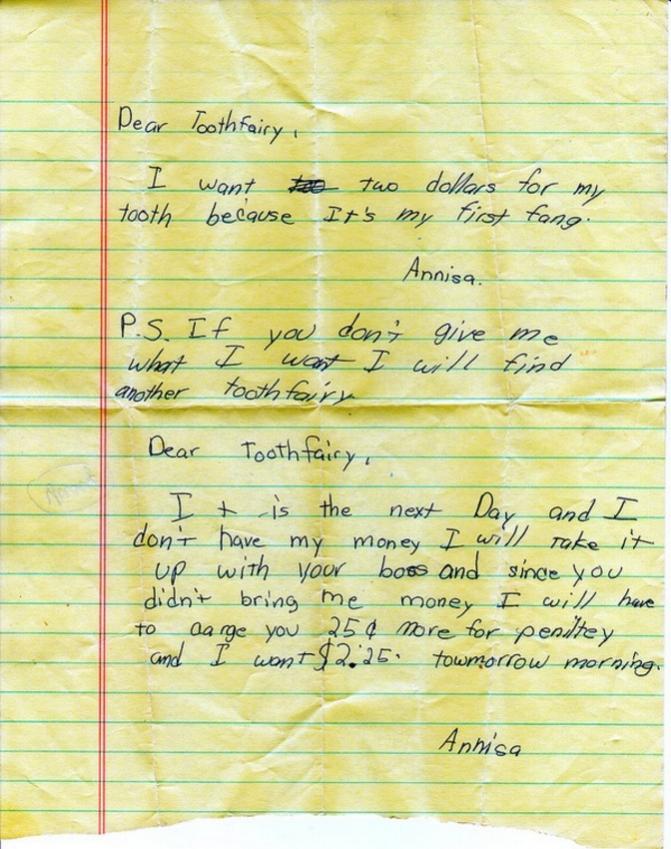 Dear Toothfairy,
I want two dollars for my
tooth because It's my first fang.
Annisa.
P.S. If you don't give me
what I want I will find
another toothfairy
Dear Toothfairy,
It is the next Day and I
don't have my money I will take it
up with your boss and since you
didn't bring me money I will have
to carge you 25¢ more for peniltey
and I want $2.25. towmorrow morning.
Annisa